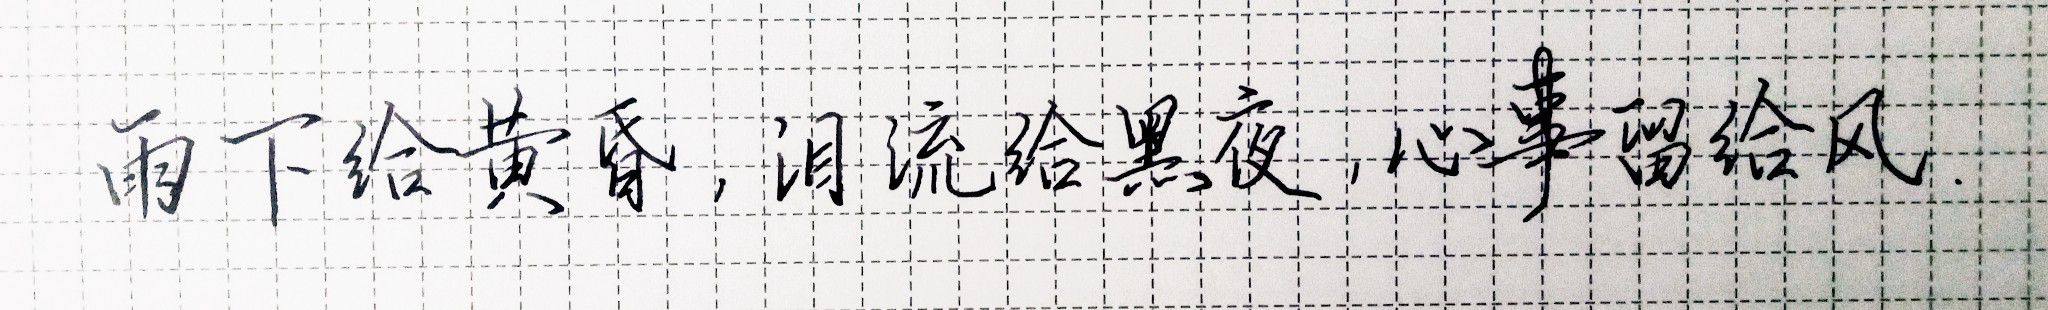 雨下给黄昏,泪流给黑夜,心事留给风.